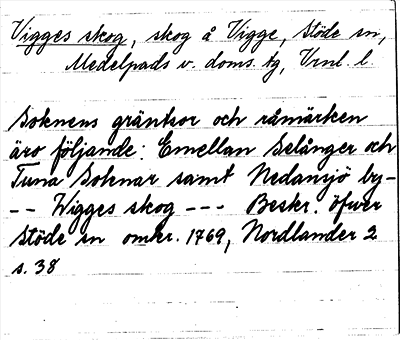 Vigges skog, skog å Vigge, Stöde sn,
Medelpads v. doms. tg, Vrnl. l.
Soknens gräntsor och råmärken
äro följande: Emellan Selånger och
Tuna Soknar samt Nedansjö by -
-- Wigges skog --- Beskr. öfwer
Stöde sn omkr. 1769, Nordlander 2
s. 38